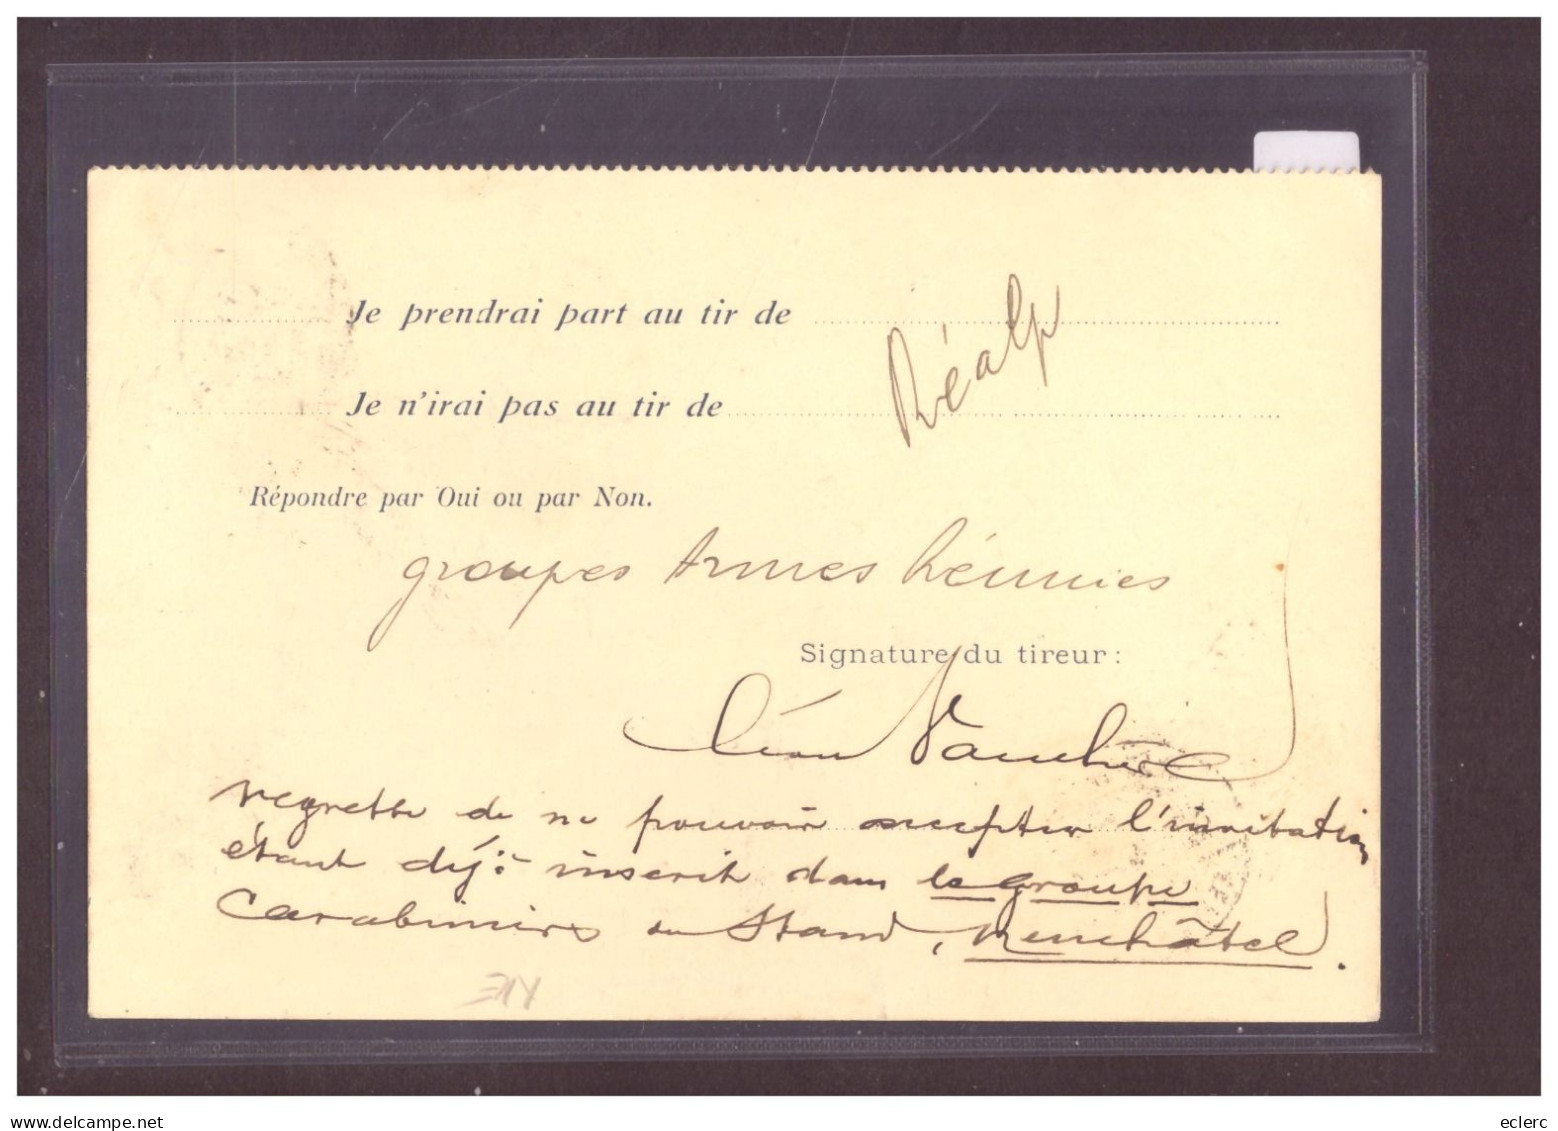 Je prendrai part au tir de
Réalp
Je n'irai pas au tir de
Répondre par Oui ou par Non.
groupes Armes Réunies
Signature du tireur :
Léon Vaucher
regrette de ne pouvoir accepter l'invitation
étant déjà inscrit dans le groupe
Carabiniers du Stand, Neuchâtel.
www.delcampe.net
eclerc